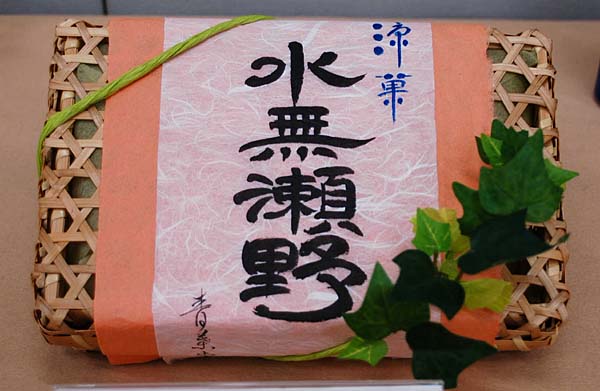 涼菓
水無瀬野